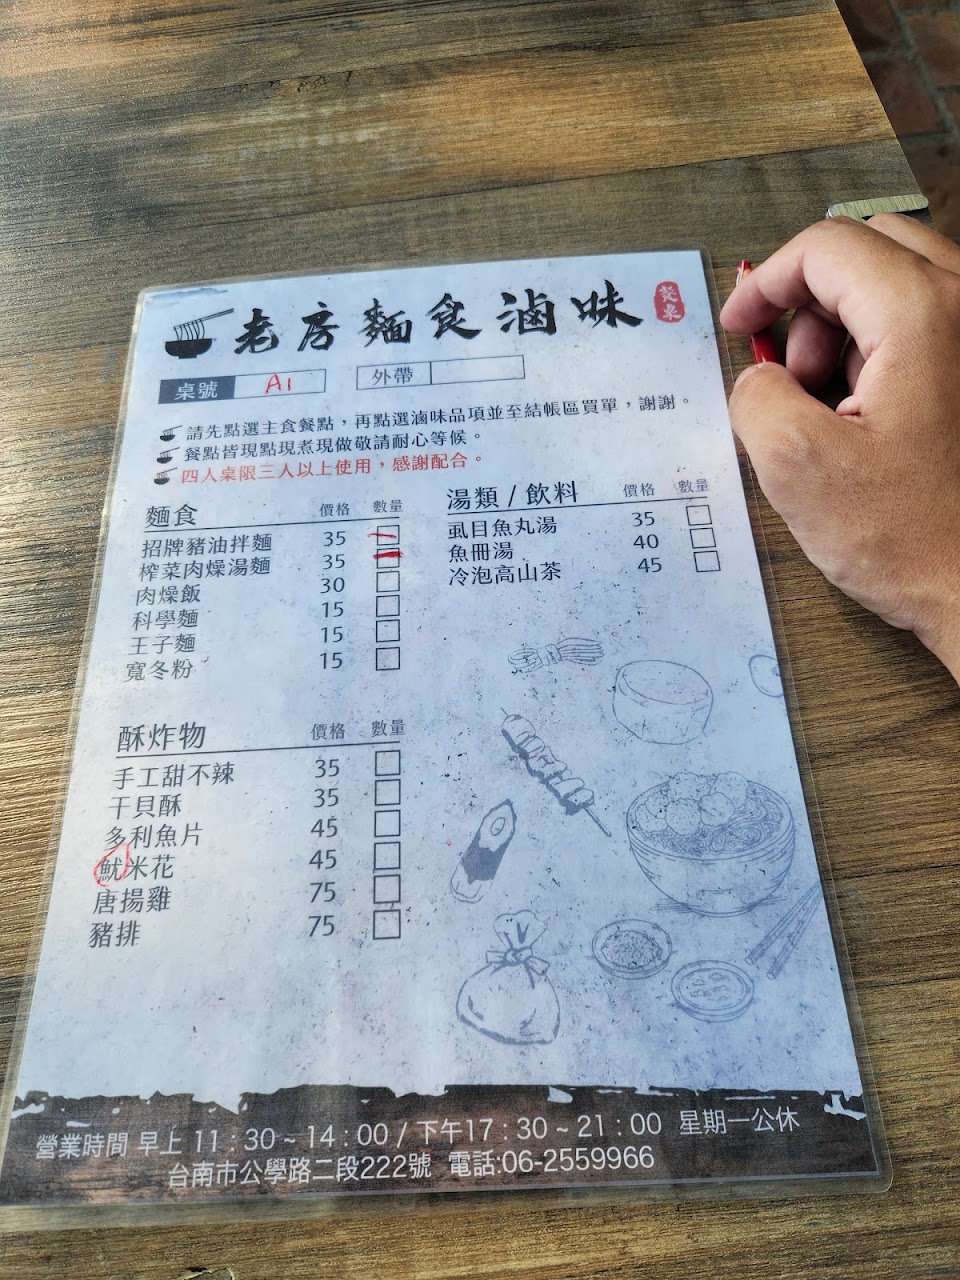 老房麵食滷味 餐桌
桌號 A1 外帶
請先點選主食餐點，再點選滷味品項並至結帳區買單，謝謝。
餐點皆現點現煮現做敬請耐心等候。
四人桌限三人以上使用，感謝配合。
麵食 價格 數量
招牌豬油拌麵 35 一
榨菜肉燥湯麵 35 一
肉燥飯 30
科學麵 15
王子麵 15
寬冬粉 15
湯類 / 飲料 價格 數量
虱目魚丸湯 35
魚冊湯 40
冷泡高山茶 45
酥炸物 價格 數量
手工甜不辣 35
干貝酥 35
多利魚片 45
魷米花 45
唐揚雞 75
豬排 75
營業時間 早上 11 : 30 ~ 14 : 00 / 下午17 : 30 ~ 21 : 00 星期一公休
台南市公學路二段222號 電話:06-2559966